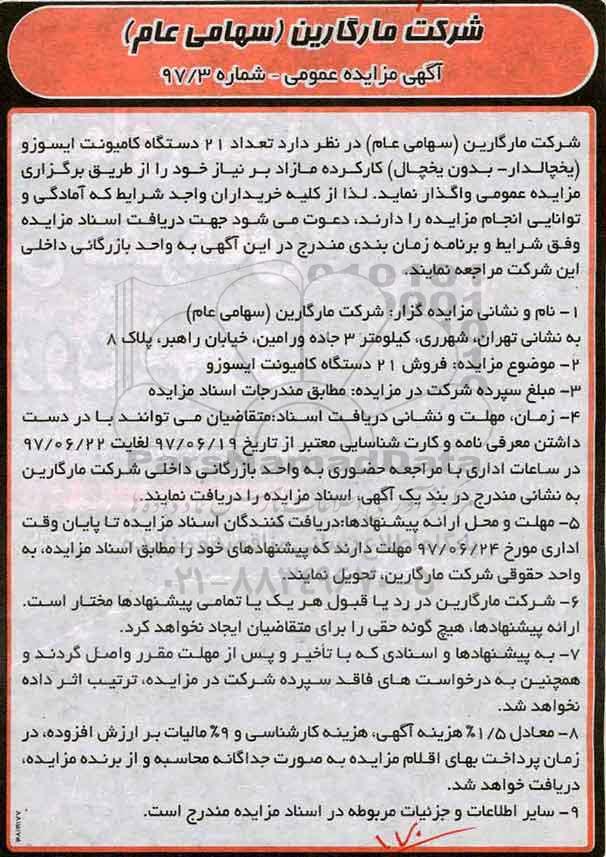 شرکت مارگارین (سهامی عام)
آگهی مزایده عمومی - شماره ۹۷/۳
شرکت مارگارین (سهامی عام) در نظر دارد تعداد ۲۱ دستگاه کامیونت ایسوزو
(یخچالدار- بدون یخچال) کارکرده مازاد بر نیاز خود را از طریق برگزاری
مزایده عمومی واگذار نماید. لذا از کلیه خریداران واجد شرایط که آمادگی و
توانایی انجام مزایده را دارند، دعوت می شود جهت دریافت اسناد مزایده
وفق شرایط و برنامه زمان بندی مندرج در این آگهی به واحد بازرگانی داخلی
این شرکت مراجعه نمایند.
۱- نام و نشانی مزایده گزار: شرکت مارگارین (سهامی عام)
به نشانی تهران، شهرری، کیلومتر ۳ جاده ورامین، خیابان راهبر، پلاک ۸
۲- موضوع مزایده: فروش ۲۱ دستگاه کامیونت ایسوزو
۳- مبلغ سپرده شرکت در مزایده: مطابق مندرجات اسناد مزایده
۴- زمان، مهلت و نشانی دریافت اسناد:متقاضیان می توانند با در دست
داشتن معرفی نامه و کارت شناسایی معتبر از تاریخ ۹۷/۰۶/۱۹ لغایت ۹۷/۰۶/۲۲
در ساعات اداری با مراجعه حضوری به واحد بازرگانی داخلی شرکت مارگارین
به نشانی مندرج در بند یک آگهی، اسناد مزایده را دریافت نمایند.
۵- مهلت و محل ارائه پیشنهادها:دریافت کنندگان اسناد مزایده تا پایان وقت
اداری مورخ ۹۷/۰۶/۲۴ مهلت دارند که پیشنهادهای خود را مطابق اسناد مزایده، به
واحد حقوقی شرکت مارگارین، تحویل نمایند.
۶- شرکت مارگارین در رد یا قبول هر یک یا تمامی پیشنهادها مختار است.
ارائه پیشنهادها، هیچ گونه حقی را برای متقاضیان ایجاد نخواهد کرد.
۷- به پیشنهادها و اسنادی که با تأخیر و پس از مهلت مقرر واصل گردند و
همچنین به درخواست های فاقد سپرده شرکت در مزایده، ترتیب اثر داده
نخواهد شد.
۸- معادل ۱/۵٪ هزینه آگهی، هزینه کارشناسی و ۹٪ مالیات بر ارزش افزوده، در
زمان پرداخت بهای اقلام مزایده به صورت جداگانه محاسبه و از برنده مزایده،
دریافت خواهد شد.
۹- سایر اطلاعات و جزئیات مربوطه در اسناد مزایده مندرج است.
۱۷۰